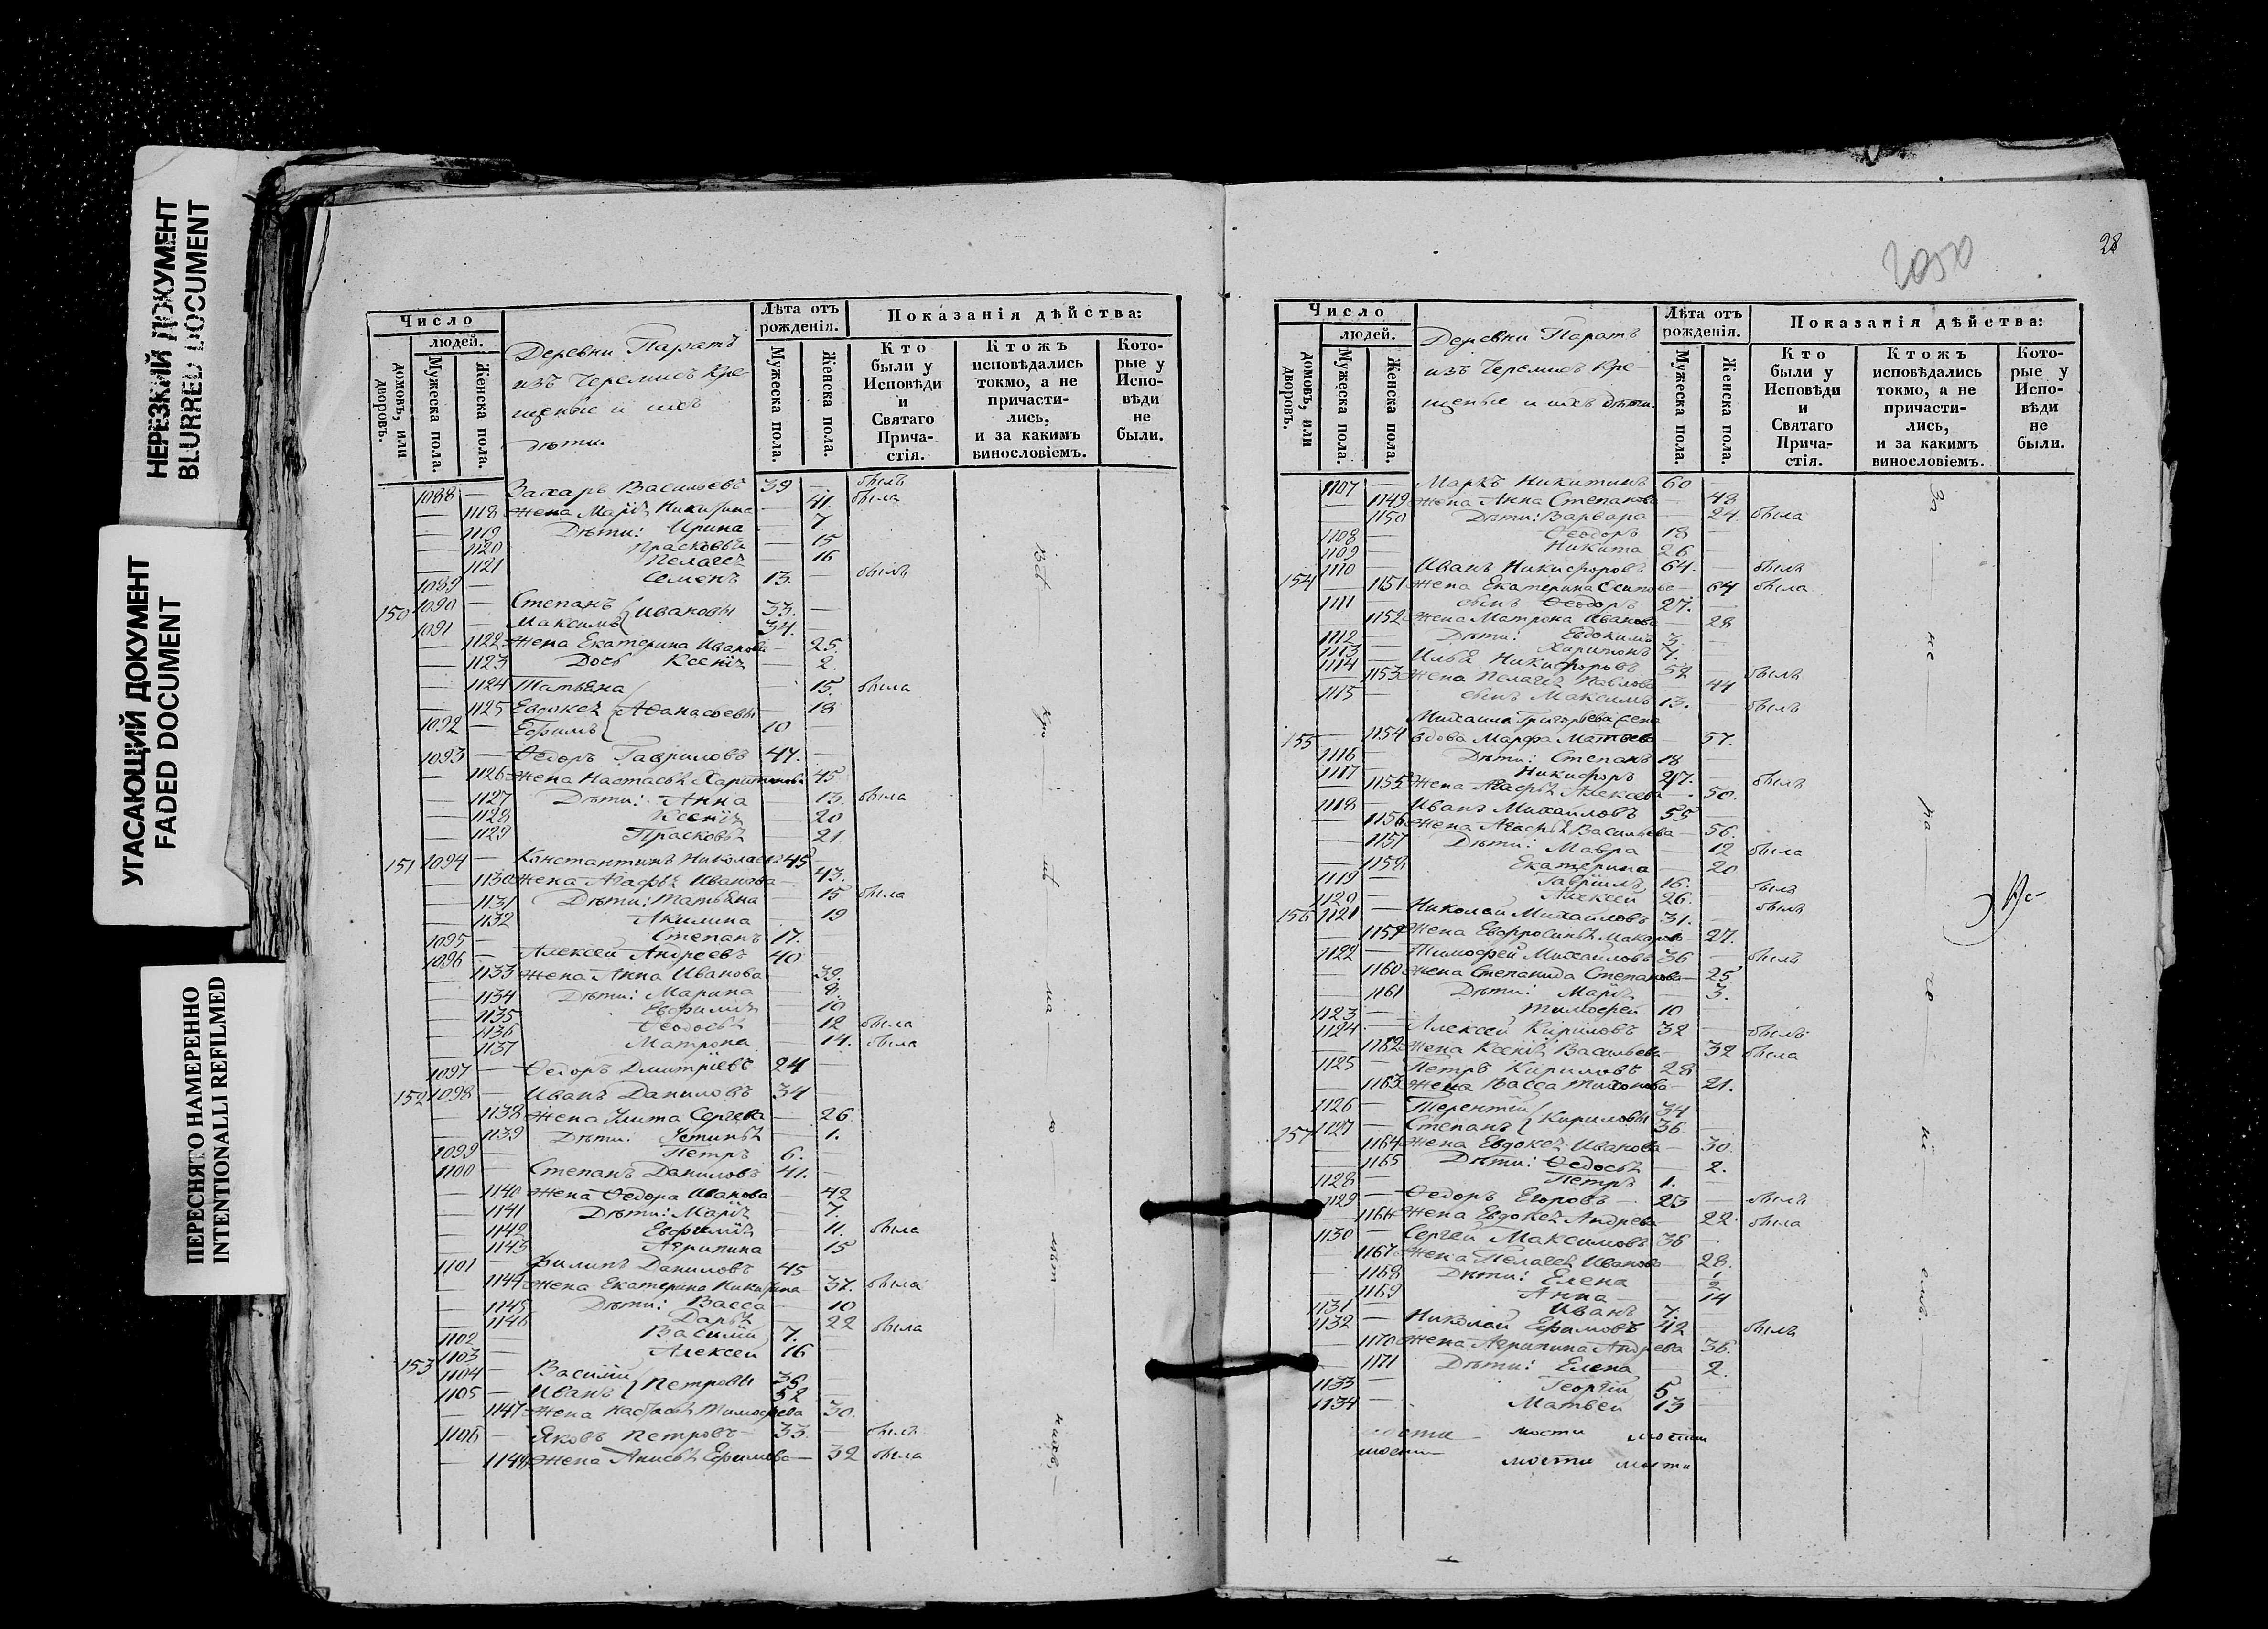 НЕРЕЗКИЙ ДОКУМЕНТ
BLURRED DOCUMENT
УГАСАЮЩИЙ ДОКУМЕНТ
FADED DOCUMENT
ПЕРЕСНЯТО НАМЕРЕННО
INTENTIONALLI REFILMED
Число
людей.
домовъ, или дворовъ.
Мужеска пола.
Женска пола.
Деревни Паратъ
изъ Черемисъ Кре-
щеные и ихъ
дѣти.
Лѣта отъ рожденія.
Мужеска пола.
Женска пола.
Показанія дѣйства:
Кто были у Исповѣди и Святаго Прича-стія.
Ктожъ исповѣдались токмо, а не причасти-лись, и за какимъ винословіемъ.
Кото-рые у Испо-вѣди не были.
1088 — Захаръ Васильевъ 39 — былъ
— 1118 Жена Марія Никитина — 41. была
— 1119 Дѣти: Ирина — 7.
— 1120 Прасковья — 15
— 1121 Пелагея — 16
1089 — Семенъ 13. — былъ
150 1090 — Степанъ 33. —
1091 — Максимъ Ивановы 34.
— 1122 Жена Екатерина Иванова — 25.
— 1123 Дочь Ксенія — 2.
— 1124 Татьяна — 15. была
— 1125 Евдокея Афанасьевы — 18
1092 — Ефимъ 10
1093 — Ѳедоръ Гавриловъ 47. —
— 1126 Жена Настасья Харитонова 45
— 1127 Дѣти: Анна — 13. была
— 1128 Ксенія — 20
— 1129 Прасковья — 21.
151 1094 — Константинъ Николаевъ 45 —
— 1130 Жена Агафья Иванова — 43.
— 1131 Дѣти: Татьяна — 15 была
— 1132 Акилина — 19
1095 — Степанъ 17.
1096 — Алексей Андреевъ 40
— 1133 Жена Анна Иванова — 39.
— 1134 Дѣти: Марина —
— 1135 Евфимія — 10
— 1136 Ѳеодосья — 12 была
— 1137 Матрона — 14. была
1097 — Ѳедоръ Дмитріевъ 24 —
152 1098 — Иванъ Даниловъ 34 —
— 1138 Жена Улита Сергева — 26
— 1139 Дѣти: Устинья — 1.
1099 — Петръ 6. —
1100 — Степанъ Даниловъ 41. —
— 1140 Жена Ѳедора Иванова — 42
— 1141 Дѣти: Марія — 7.
— 1142 Евфимія — 11. была
— 1143 Агрипина — 15
1101 — Филипъ Даниловъ 45 —
— 1144 Жена Екатерина Никитина 37. была
— 1145 Дѣти: Васса — 10
— 1146 Дарья — 22 была
1102 — Василій 7. —
1103 — Алексей 16 —
153 1104 — Василій 36 —
1105 — Иванъ Петровы 52 —
— 1147 Жена Настасья Тимофеева 30.
1106 — Яковъ Петровъ 33. — былъ
— 1148 Жена Анисья Ефимова — 32 была
28
2050
Число
людей.
домовъ, или дворовъ.
Мужеска пола.
Женска пола.
Деревни Паратъ
изъ Черемисъ Кре-
щеные и ихъ дѣти.
Лѣта отъ рожденія.
Мужеска пола.
Женска пола.
Показанія дѣйства:
Кто были у Исповѣди и Святаго Прича-стія.
Ктожъ исповѣдались токмо, а не причасти-лись, и за какимъ винословіемъ.
Кото-рые у Испо-вѣди не были.
1107 — Маркъ Никитинъ 60 —
— 1149 Жена Анна Степанова — 48
— 1150 Дѣти: Варвара — 24. была
1108 — Ѳеодоръ 18 —
1109 — Никита 26 —
1110 — Иванъ Никифоровъ 64. — былъ
154 — 1151 Жена Екатерина Осипова — 64 была
1111 — сынъ Ѳеодоръ 27. —
— 1152 Жена Матрона Иванова — 28
1112 — Дѣти: Евдокимъ 3 —
1113 — Харитонъ 7. —
1114 — Илья Никифоровъ 52 — былъ
— 1153 Жена Пелагея Павлова — 44
1115 — сынъ Максимъ 13. — былъ
Михаила Григорьева сена
155 — 1154 вдова Марфа Матвева — 57.
1116 — Дѣти: Степанъ 18 —
1117 — Никифоръ 27. — былъ
— 1155 Жена Агафья Алексева — 50.
1118 — Иванъ Михайловъ 55 —
— 1156 Жена Агафья Васильева — 56.
— 1157 Дѣти: Мавра — 12 была
— 1158 Екатерина — 20
1119 — Гаврилъ 16. — былъ
1120 — Алексей 26. —
156 1121 — Николай Михайловъ 31. — былъ
— 1159 Жена Евфросинья Макарова — 27.
1122 — Тимофей Михайловъ 36 — былъ
— 1160 Жена Степанида Степанова — 25
— 1161 Дѣти: Марія — 3.
1123 — Тимофей 10 —
1124 — Алексей Кириловъ 32 — былъ
— 1162 Жена Ксенія Васильева — 32 была
1125 — Петръ Кириловъ 28 —
— 1163 Жена Васса Тихонова — 21.
1126 — Терентій 34
157 1127 — Степанъ Кириловы 36
— 1164 Жена Евдокея Иванова — 30.
— 1165 Дѣти: Ѳедосья — 2.
1128 — Петръ 1. —
1129 — Ѳедоръ Егоровъ 23 — былъ
— 1166 Жена Евдокея Андрева — 22 была
1130 — Сергей Максимовъ 36 —
— 1167 Жена Пелагея Иванова — 28.
— 1168 Дѣти: Елена —
— 1169 Анна — 14
1131 — Иванъ 7. —
1132 — Николай Ефимовъ 42 — былъ
— 1170 Жена Агрипина Андрева 36.
— 1171 Дѣти: Елена — 2.
1133 — Георгій 5 —
1134 — Матвей 13 —
мости мости
мости мости